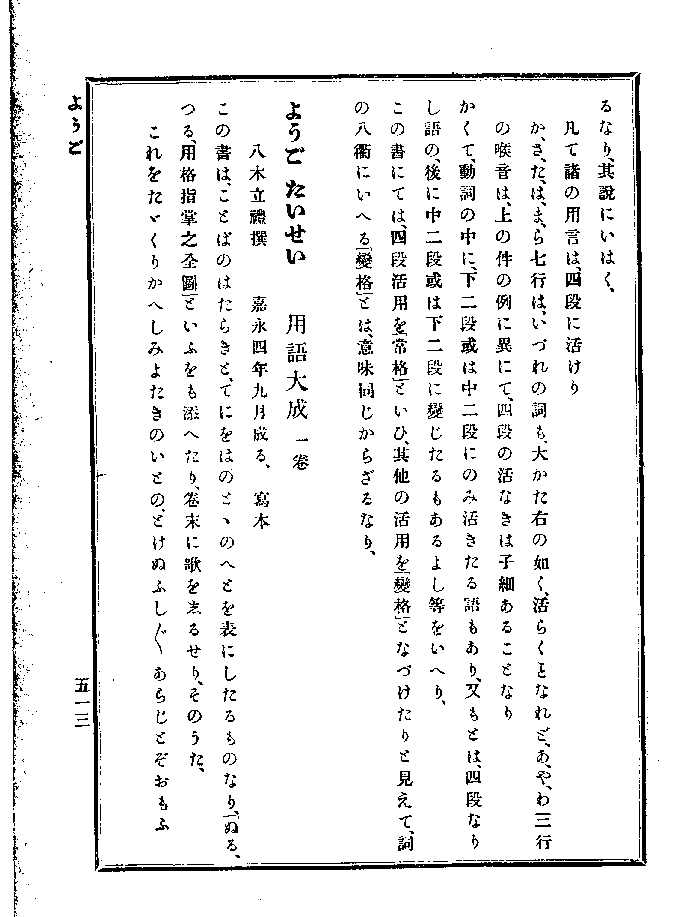 るなり、其説にいはく、
凡て諸の用言は、四段に活けり
か、さ、た、は、ま、ら七行は、いづれの詞も、大かた右の如く、活らくとなれど、あ、や、わ三行
の喉音は、上の件の例に異にて、四段の活なきは子細あることなり
かくて、動詞の中に、下二段或は中二段にのみ活きたる語もあり、又もとは、四段なり
し語の、後に中二段或は下二段に變じたるもあるよし等をいへり、
この書にては、四段活用を「常格」といひ、其他の活用を「變格」となづけたりと見えて、詞
の八衢にいへる「變格」とは、意味同じからざるなり、
ようご たいせい 用語大成 一卷
八木立禮撰 嘉永四年九月成る、 寫本
この書は、ことばのはたらきと、てにをはのとゝのへとを表にしたるものなり、「ぬる、
つる、用格指掌之全圖」といふをも添へたり、卷末に歌をしるせり、そのうた、
これをたゞくりかへしみよたきのいとの、とけぬふし〴〵あらじとぞおもふ
ようご
五一三